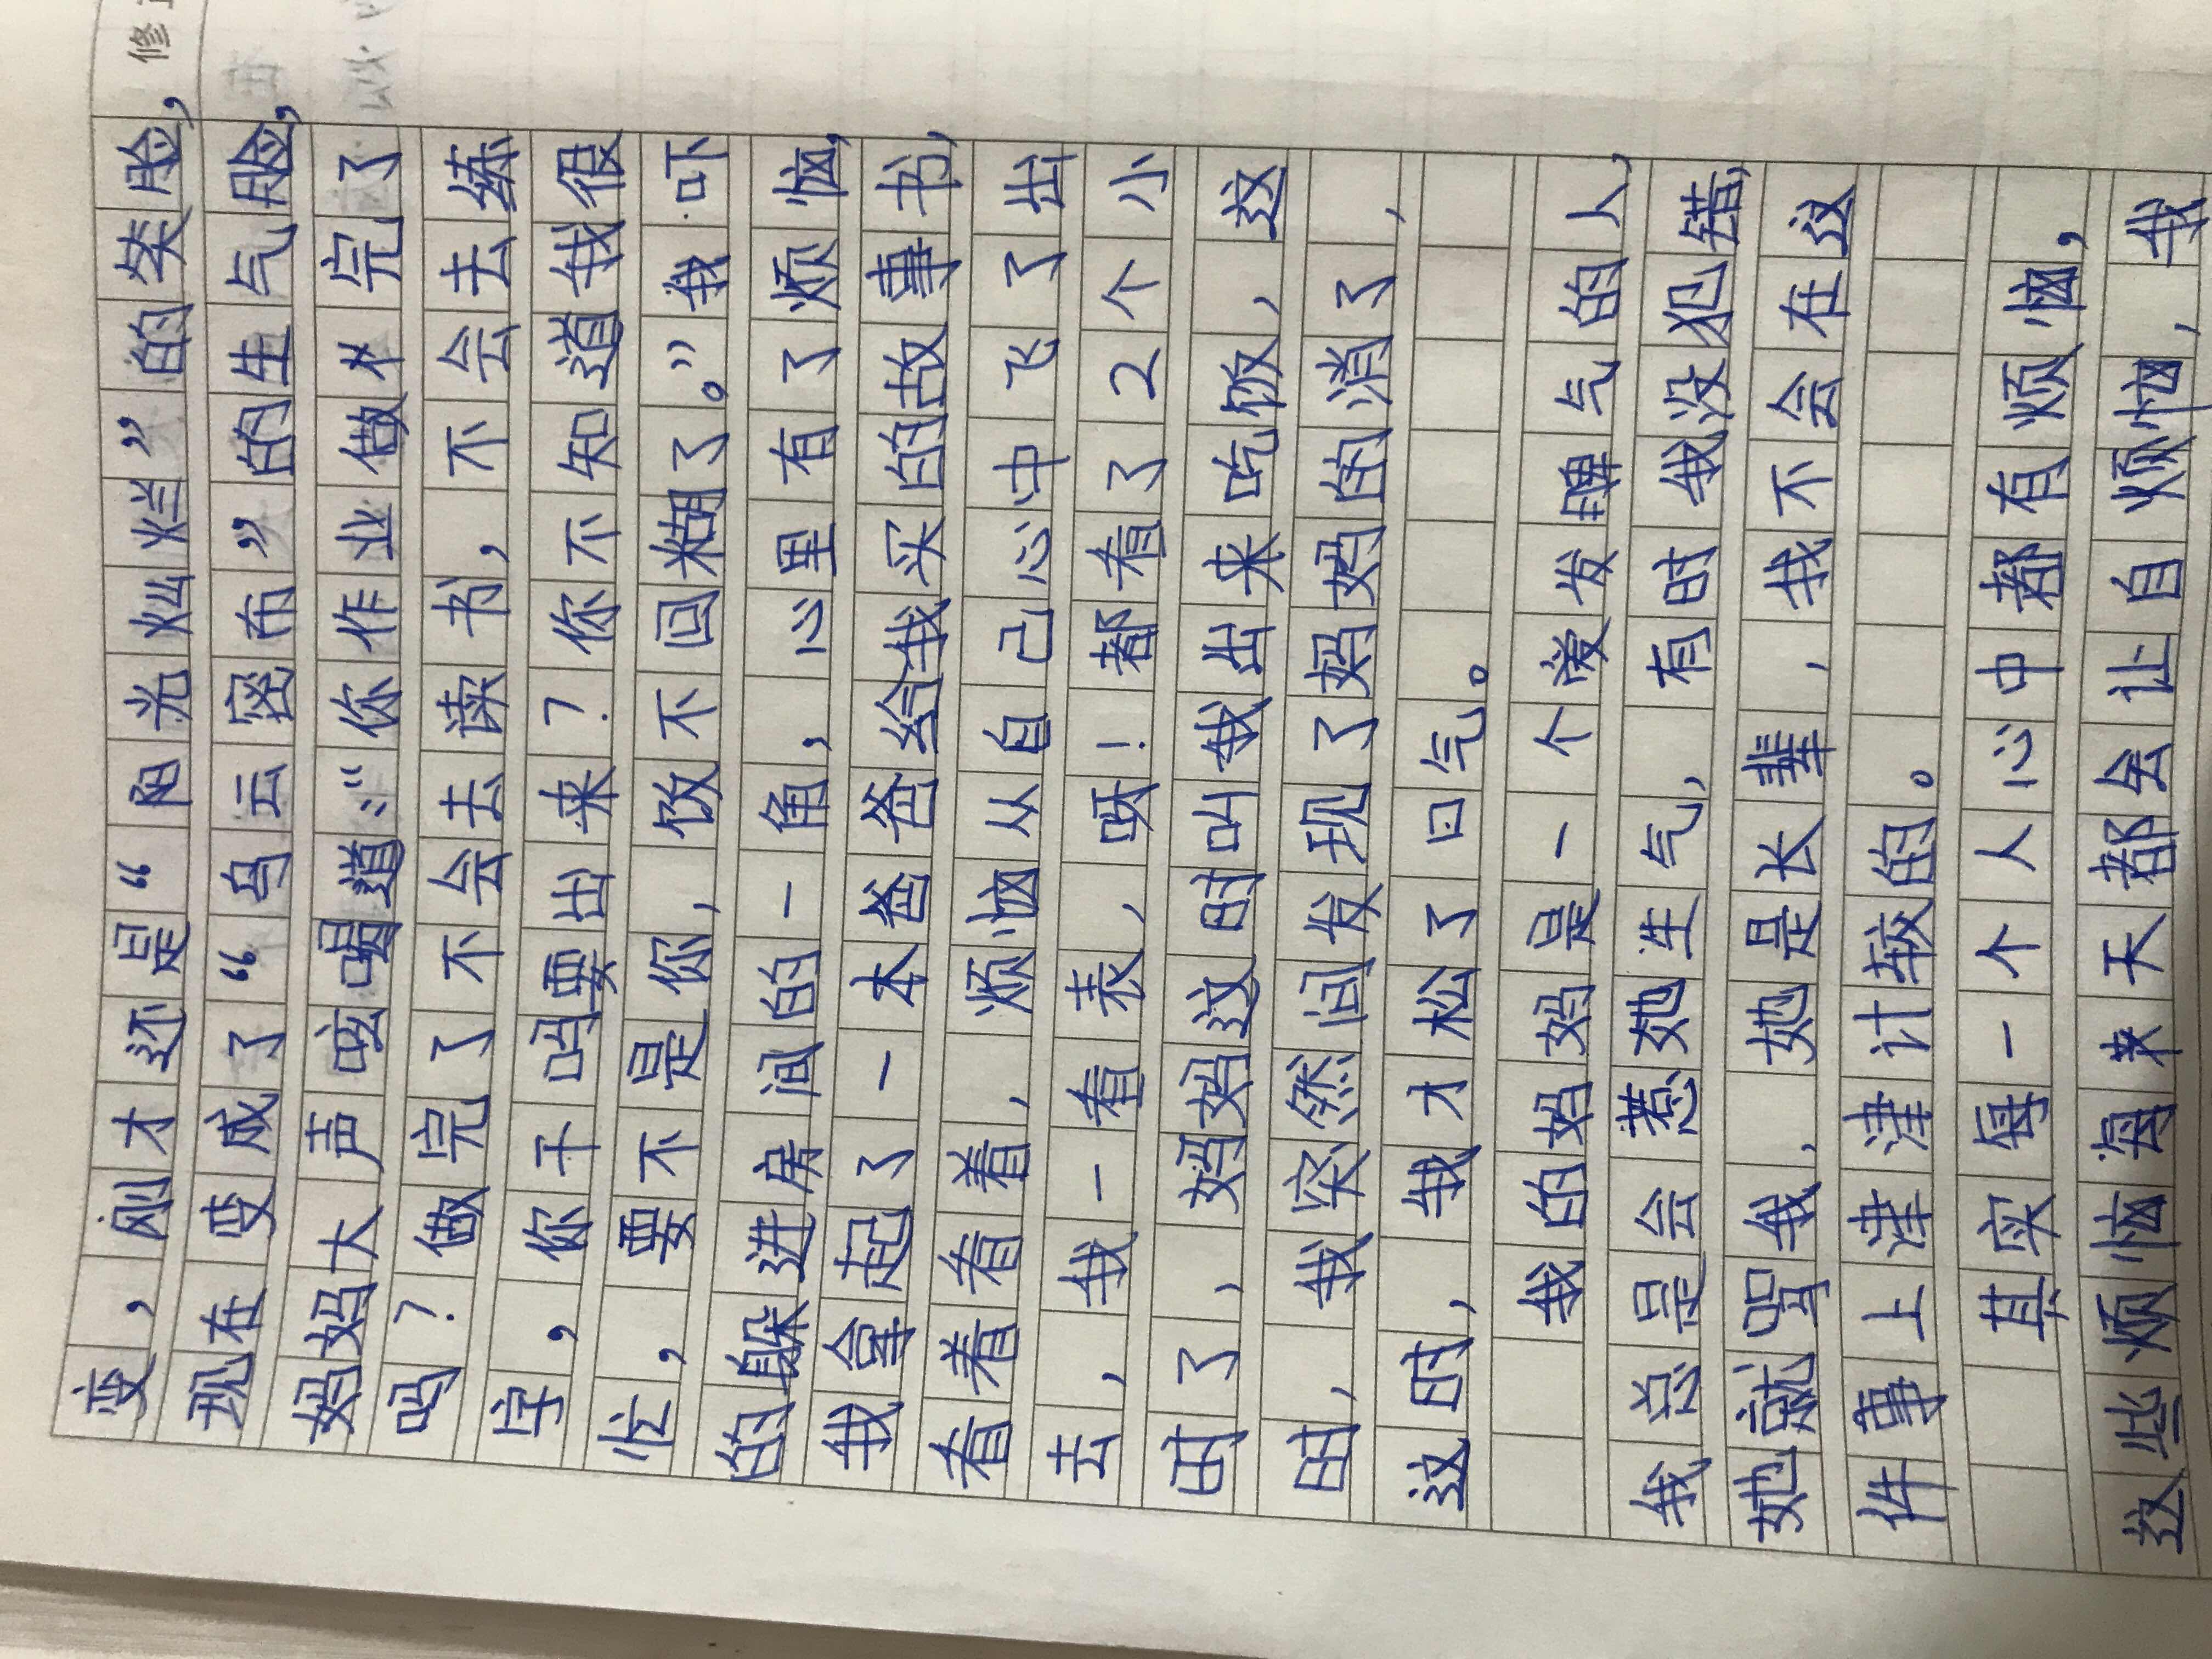 修
变，刚才还是“阳光灿烂”的笑脸，
现在变成了“乌云密布”的生气脸，
妈妈大声吆喝道：“你作业做完了
吗？做完了不会去读书，不会去练
字，你干吗要出来？你不知道我很
忙，要不是你，饭不回糊了。”我吓
的躲进房间的一角，心里有了烦恼，
我拿起了一本爸爸给我买的故事书，
看着看着，烦恼从自己心中飞了出
去，我一看表，呀！都看了2个小
时了，妈妈这时叫我出来吃饭，这
时，我突然间发现了妈妈的消了，
这时，我才松了口气。
我的妈妈是一个爱发脾气的人，
我总是会惹她生气，有时我没犯错，
她就骂我，她是长辈，我不会在这
件事上津津计较的。
其实每一个人心中都有烦恼，
这些烦恼每天都会让自烦恼，我